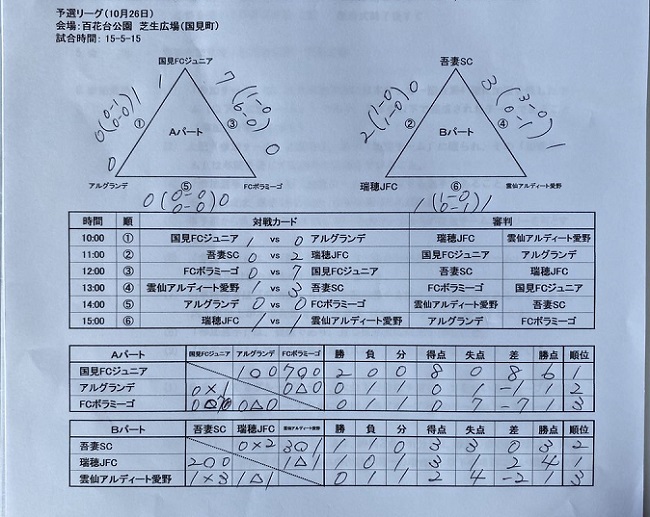 予選リーグ(10月26日)
会場: 百花台公園 芝生広場(国見町)
試合時間: 15-5-15
国見FCジュニア 吾妻SC
1 7 3
0(0-1 0-0)1 ① Aパート ③ (1-0 6-0) 2(1-0 1-0)0 ② Bパート ④ (3-0 0-1)
0 0 1
アルグランデ ⑤ FCボラミーゴ 瑞穂JFC ⑥ 雲仙アルディート愛野
0(0-0 0-0)0 1(1-0 0-1)1
時間 順 対戦カード 審判
10:00 ① 国見FCジュニア 1 vs 0 アルグランデ 瑞穂JFC 雲仙アルディート愛野
11:00 ② 吾妻SC 0 vs 2 瑞穂JFC 国見FCジュニア アルグランデ
12:00 ③ FCボラミーゴ 0 vs 7 国見FCジュニア 吾妻SC 瑞穂JFC
13:00 ④ 雲仙アルディート愛野 1 vs 3 吾妻SC FCボラミーゴ 国見FCジュニア
14:00 ⑤ アルグランデ 0 vs 0 FCボラミーゴ 雲仙アルディート愛野 吾妻SC
15:00 ⑥ 瑞穂JFC 1 vs 1 雲仙アルディート愛野 アルグランデ FCボラミーゴ
Aパート 国見FCジュニア アルグランデ FCボラミーゴ 勝 負 分 得点 失点 差 勝点 順位
国見FCジュニア 1○0 7○0 2 0 0 8 0 8 6 1
アルグランデ 0×1 0△0 0 1 1 0 1 -1 1 2
FCボラミーゴ 0 7 0△0 0 1 1 0 7 -7 1 3
Bパート 吾妻SC 瑞穂JFC 雲仙アルディート愛野 勝 負 分 得点 失点 差 勝点 順位
吾妻SC 0×2 3○1 1 1 0 3 3 0 3 2
瑞穂JFC 2○0 1△1 1 0 1 3 1 2 4 1
雲仙アルディート愛野 1×3 1△1 0 1 1 2 4 -2 1 3